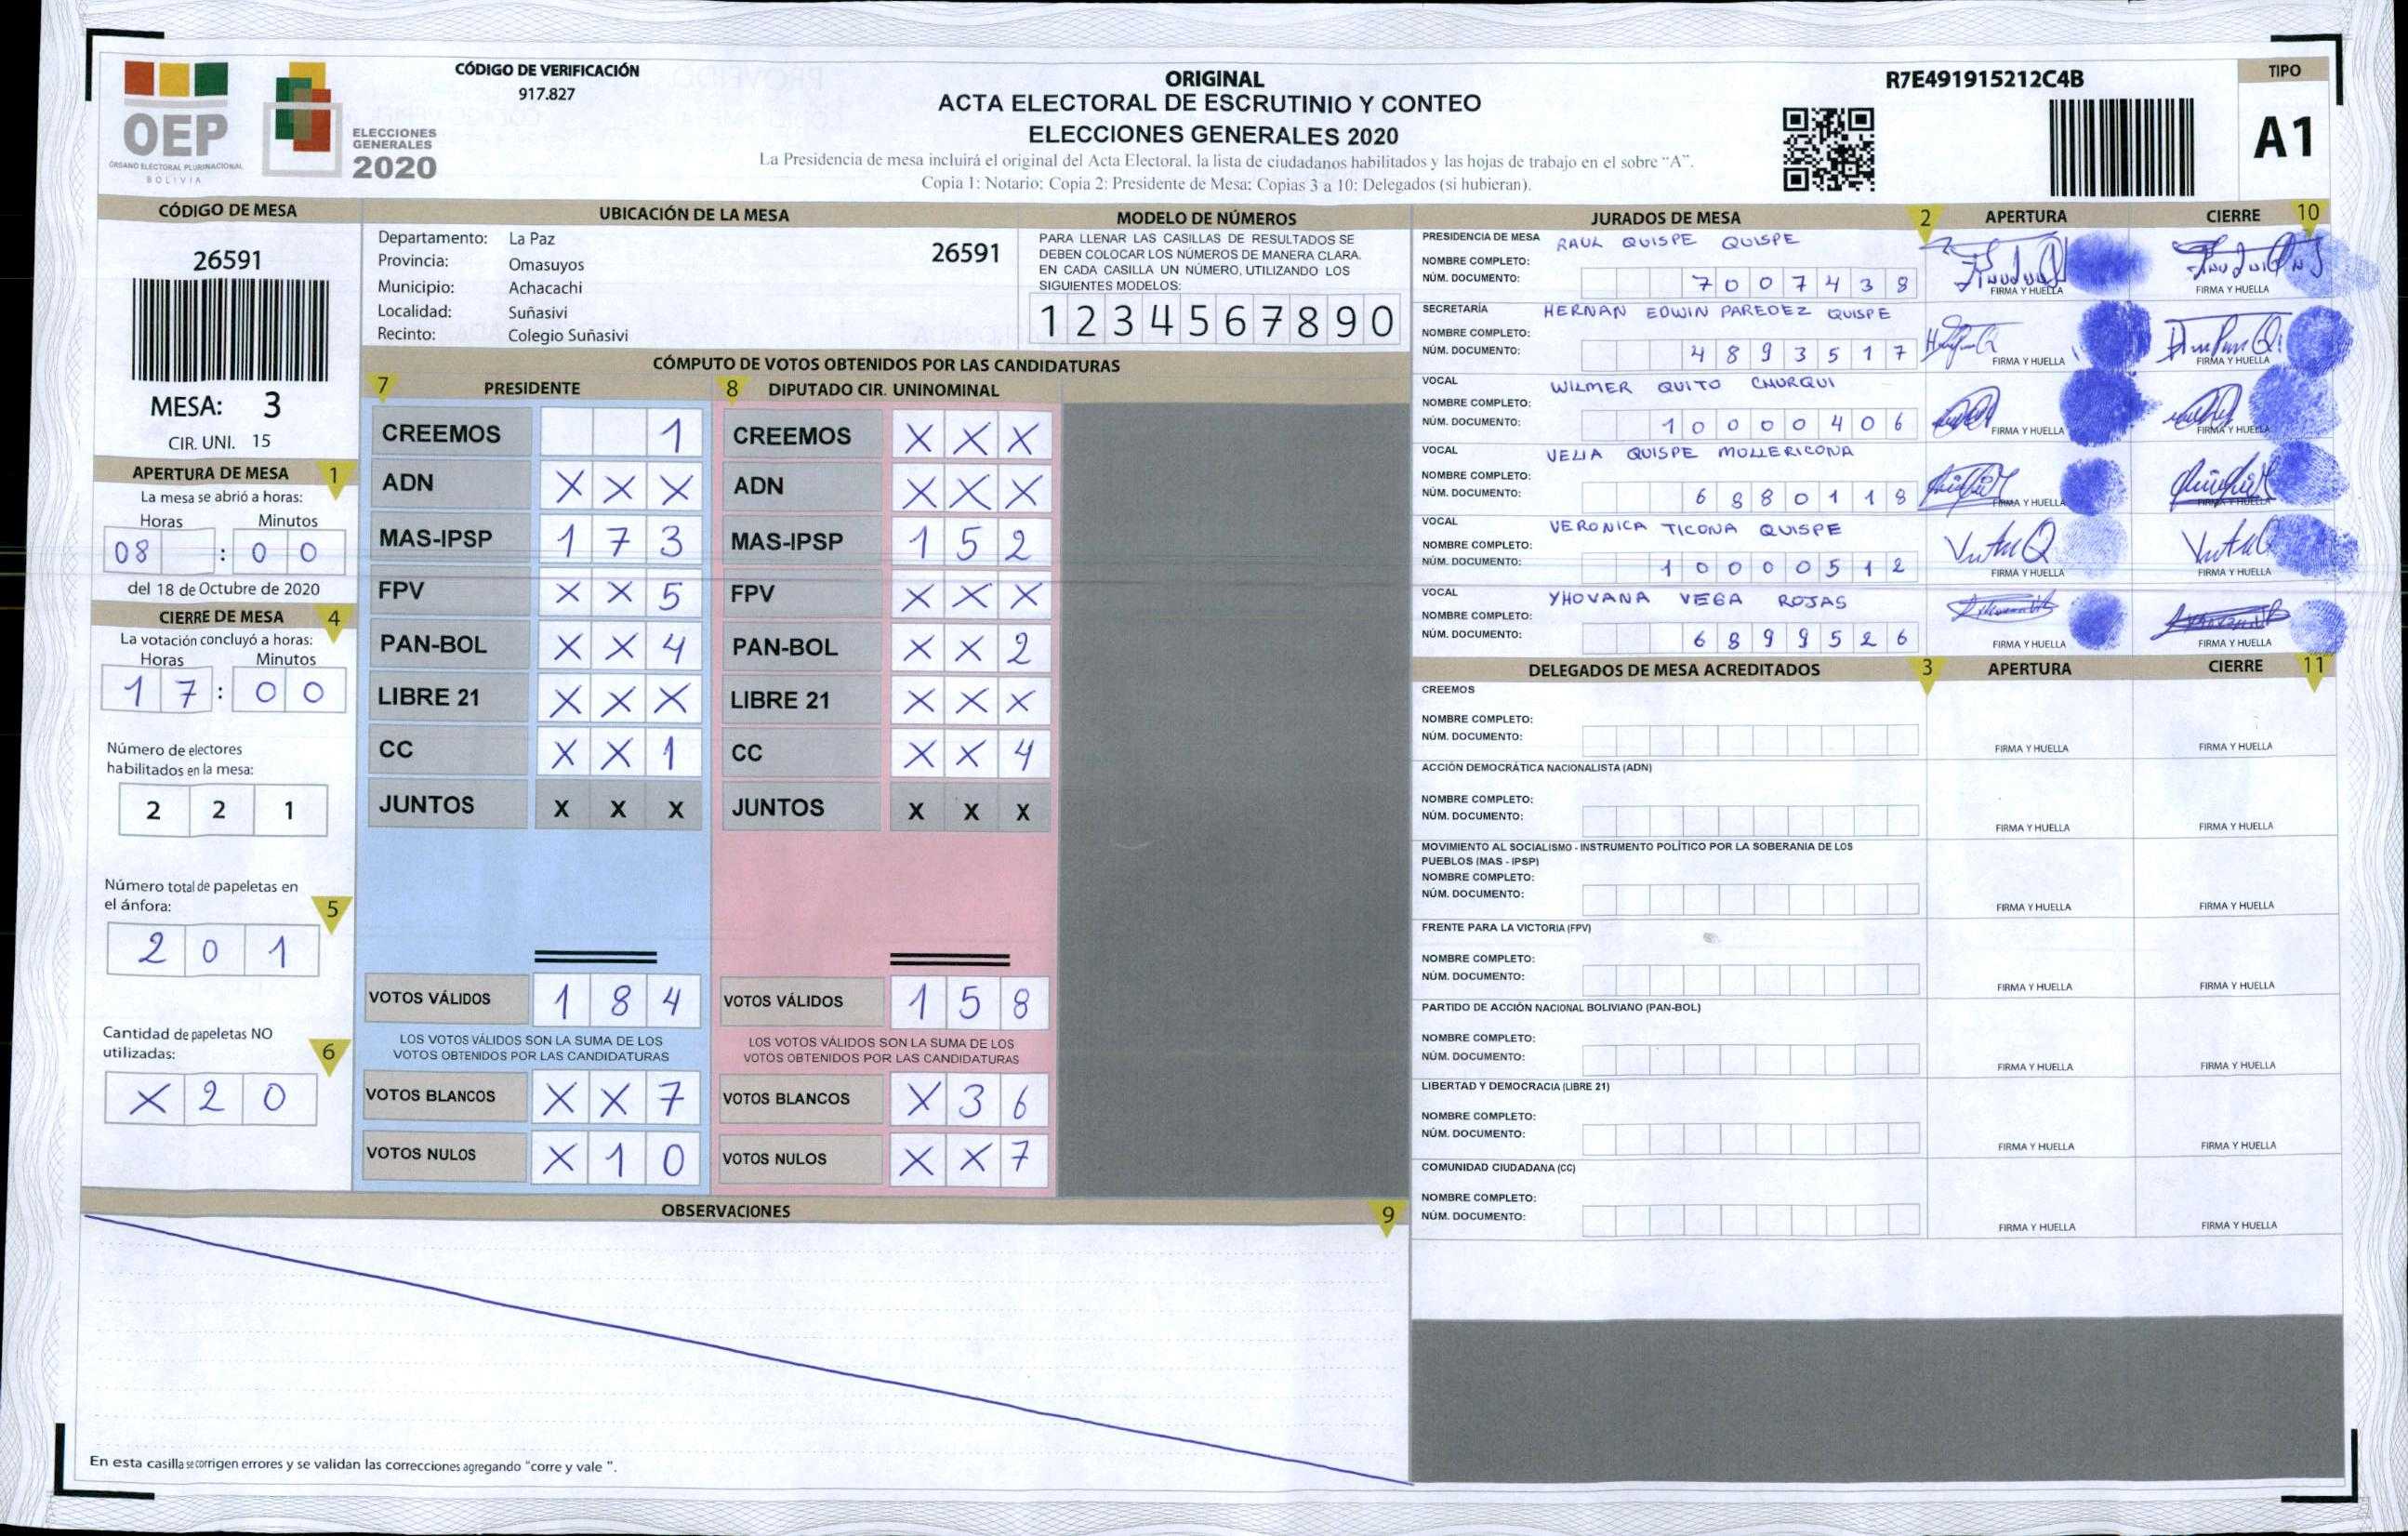 OEP
ÓRGANO ELECTORAL PLURINACIONAL
BOLIVIA
ELECCIONES
GENERALES
2020
CÓDIGO DE VERIFICACIÓN
917.827
ORIGINAL
ACTA ELECTORAL DE ESCRUTINIO Y CONTEO
ELECCIONES GENERALES 2020
La Presidencia de mesa incluirá el original del Acta Electoral, la lista de ciudadanos habilitados y las hojas de trabajo en el sobre “A”.
Copia 1: Notario; Copia 2: Presidente de Mesa; Copias 3 a 10: Delegados (si hubieran).
R7E491915212C4B
TIPO
A1
CÓDIGO DE MESA
26591
MESA: 3
CIR. UNI. 15
APERTURA DE MESA 1
La mesa se abrió a horas:
Horas Minutos
08 : 0 0
del 18 de Octubre de 2020
CIERRE DE MESA 4
La votación concluyó a horas:
Horas Minutos
1 7 : 0 0
Número de electores
habilitados en la mesa:
2 2 1
Número total de papeletas en
el ánfora: 5
2 0 1
Cantidad de papeletas NO
utilizadas: 6
X 2 0
UBICACIÓN DE LA MESA
Departamento: La Paz
26591
Provincia: Omasuyos
Municipio: Achacachi
Localidad: Suñasivi
Recinto: Colegio Suñasivi
MODELO DE NÚMEROS
PARA LLENAR LAS CASILLAS DE RESULTADOS SE
DEBEN COLOCAR LOS NÚMEROS DE MANERA CLARA.
EN CADA CASILLA UN NÚMERO, UTILIZANDO LOS
SIGUIENTES MODELOS:
1 2 3 4 5 6 7 8 9 0
CÓMPUTO DE VOTOS OBTENIDOS POR LAS CANDIDATURAS
7 PRESIDENTE
CREEMOS 1
ADN X X X
MAS-IPSP 1 7 3
FPV X X 5
PAN-BOL X X 4
LIBRE 21 X X X
CC X X 1
JUNTOS X X X
VOTOS VÁLIDOS 1 8 4
LOS VOTOS VÁLIDOS SON LA SUMA DE LOS
VOTOS OBTENIDOS POR LAS CANDIDATURAS
VOTOS BLANCOS X X 7
VOTOS NULOS X 1 0
8 DIPUTADO CIR. UNINOMINAL
CREEMOS X X X
ADN X X X
MAS-IPSP 1 5 2
FPV X X X
PAN-BOL X X 2
LIBRE 21 X X X
CC X X 4
JUNTOS X X X
VOTOS VÁLIDOS 1 5 8
LOS VOTOS VÁLIDOS SON LA SUMA DE LOS
VOTOS OBTENIDOS POR LAS CANDIDATURAS
VOTOS BLANCOS X 3 6
VOTOS NULOS X X 7
OBSERVACIONES 9
En esta casilla se corrigen errores y se validan las correcciones agregando “corre y vale ”.
JURADOS DE MESA 2 APERTURA CIERRE 10
PRESIDENCIA DE MESA RAUL QUISPE QUISPE
NOMBRE COMPLETO:
NÚM. DOCUMENTO: 7 0 0 7 4 3 8
FIRMA Y HUELLA FIRMA Y HUELLA
SECRETARÍA HERNAN EDWIN PAREDEZ QUISPE
NOMBRE COMPLETO:
NÚM. DOCUMENTO: 4 8 9 3 5 1 7
FIRMA Y HUELLA FIRMA Y HUELLA
VOCAL WILMER QUITO CHURQUI
NOMBRE COMPLETO:
NÚM. DOCUMENTO: 1 0 0 0 0 4 0 6
FIRMA Y HUELLA FIRMA Y HUELLA
VOCAL VELIA QUISPE MOLLERICONA
NOMBRE COMPLETO:
NÚM. DOCUMENTO: 6 8 8 0 1 1 8
FIRMA Y HUELLA FIRMA Y HUELLA
VOCAL VERONICA TICONA QUISPE
NOMBRE COMPLETO:
NÚM. DOCUMENTO: 1 0 0 0 0 5 1 2
FIRMA Y HUELLA FIRMA Y HUELLA
VOCAL YHOVANA VEGA ROJAS
NOMBRE COMPLETO:
NÚM. DOCUMENTO: 6 8 9 9 5 2 6
FIRMA Y HUELLA FIRMA Y HUELLA
DELEGADOS DE MESA ACREDITADOS 3 APERTURA CIERRE 11
CREEMOS
NOMBRE COMPLETO:
NÚM. DOCUMENTO:
FIRMA Y HUELLA FIRMA Y HUELLA
ACCIÓN DEMOCRÁTICA NACIONALISTA (ADN)
NOMBRE COMPLETO:
NÚM. DOCUMENTO:
FIRMA Y HUELLA FIRMA Y HUELLA
MOVIMIENTO AL SOCIALISMO - INSTRUMENTO POLÍTICO POR LA SOBERANIA DE LOS
PUEBLOS (MAS - IPSP)
NOMBRE COMPLETO:
NÚM. DOCUMENTO:
FIRMA Y HUELLA FIRMA Y HUELLA
FRENTE PARA LA VICTORIA (FPV)
NOMBRE COMPLETO:
NÚM. DOCUMENTO:
FIRMA Y HUELLA FIRMA Y HUELLA
PARTIDO DE ACCIÓN NACIONAL BOLIVIANO (PAN-BOL)
NOMBRE COMPLETO:
NÚM. DOCUMENTO:
FIRMA Y HUELLA FIRMA Y HUELLA
LIBERTAD Y DEMOCRACIA (LIBRE 21)
NOMBRE COMPLETO:
NÚM. DOCUMENTO:
FIRMA Y HUELLA FIRMA Y HUELLA
COMUNIDAD CIUDADANA (CC)
NOMBRE COMPLETO:
NÚM. DOCUMENTO:
FIRMA Y HUELLA FIRMA Y HUELLA